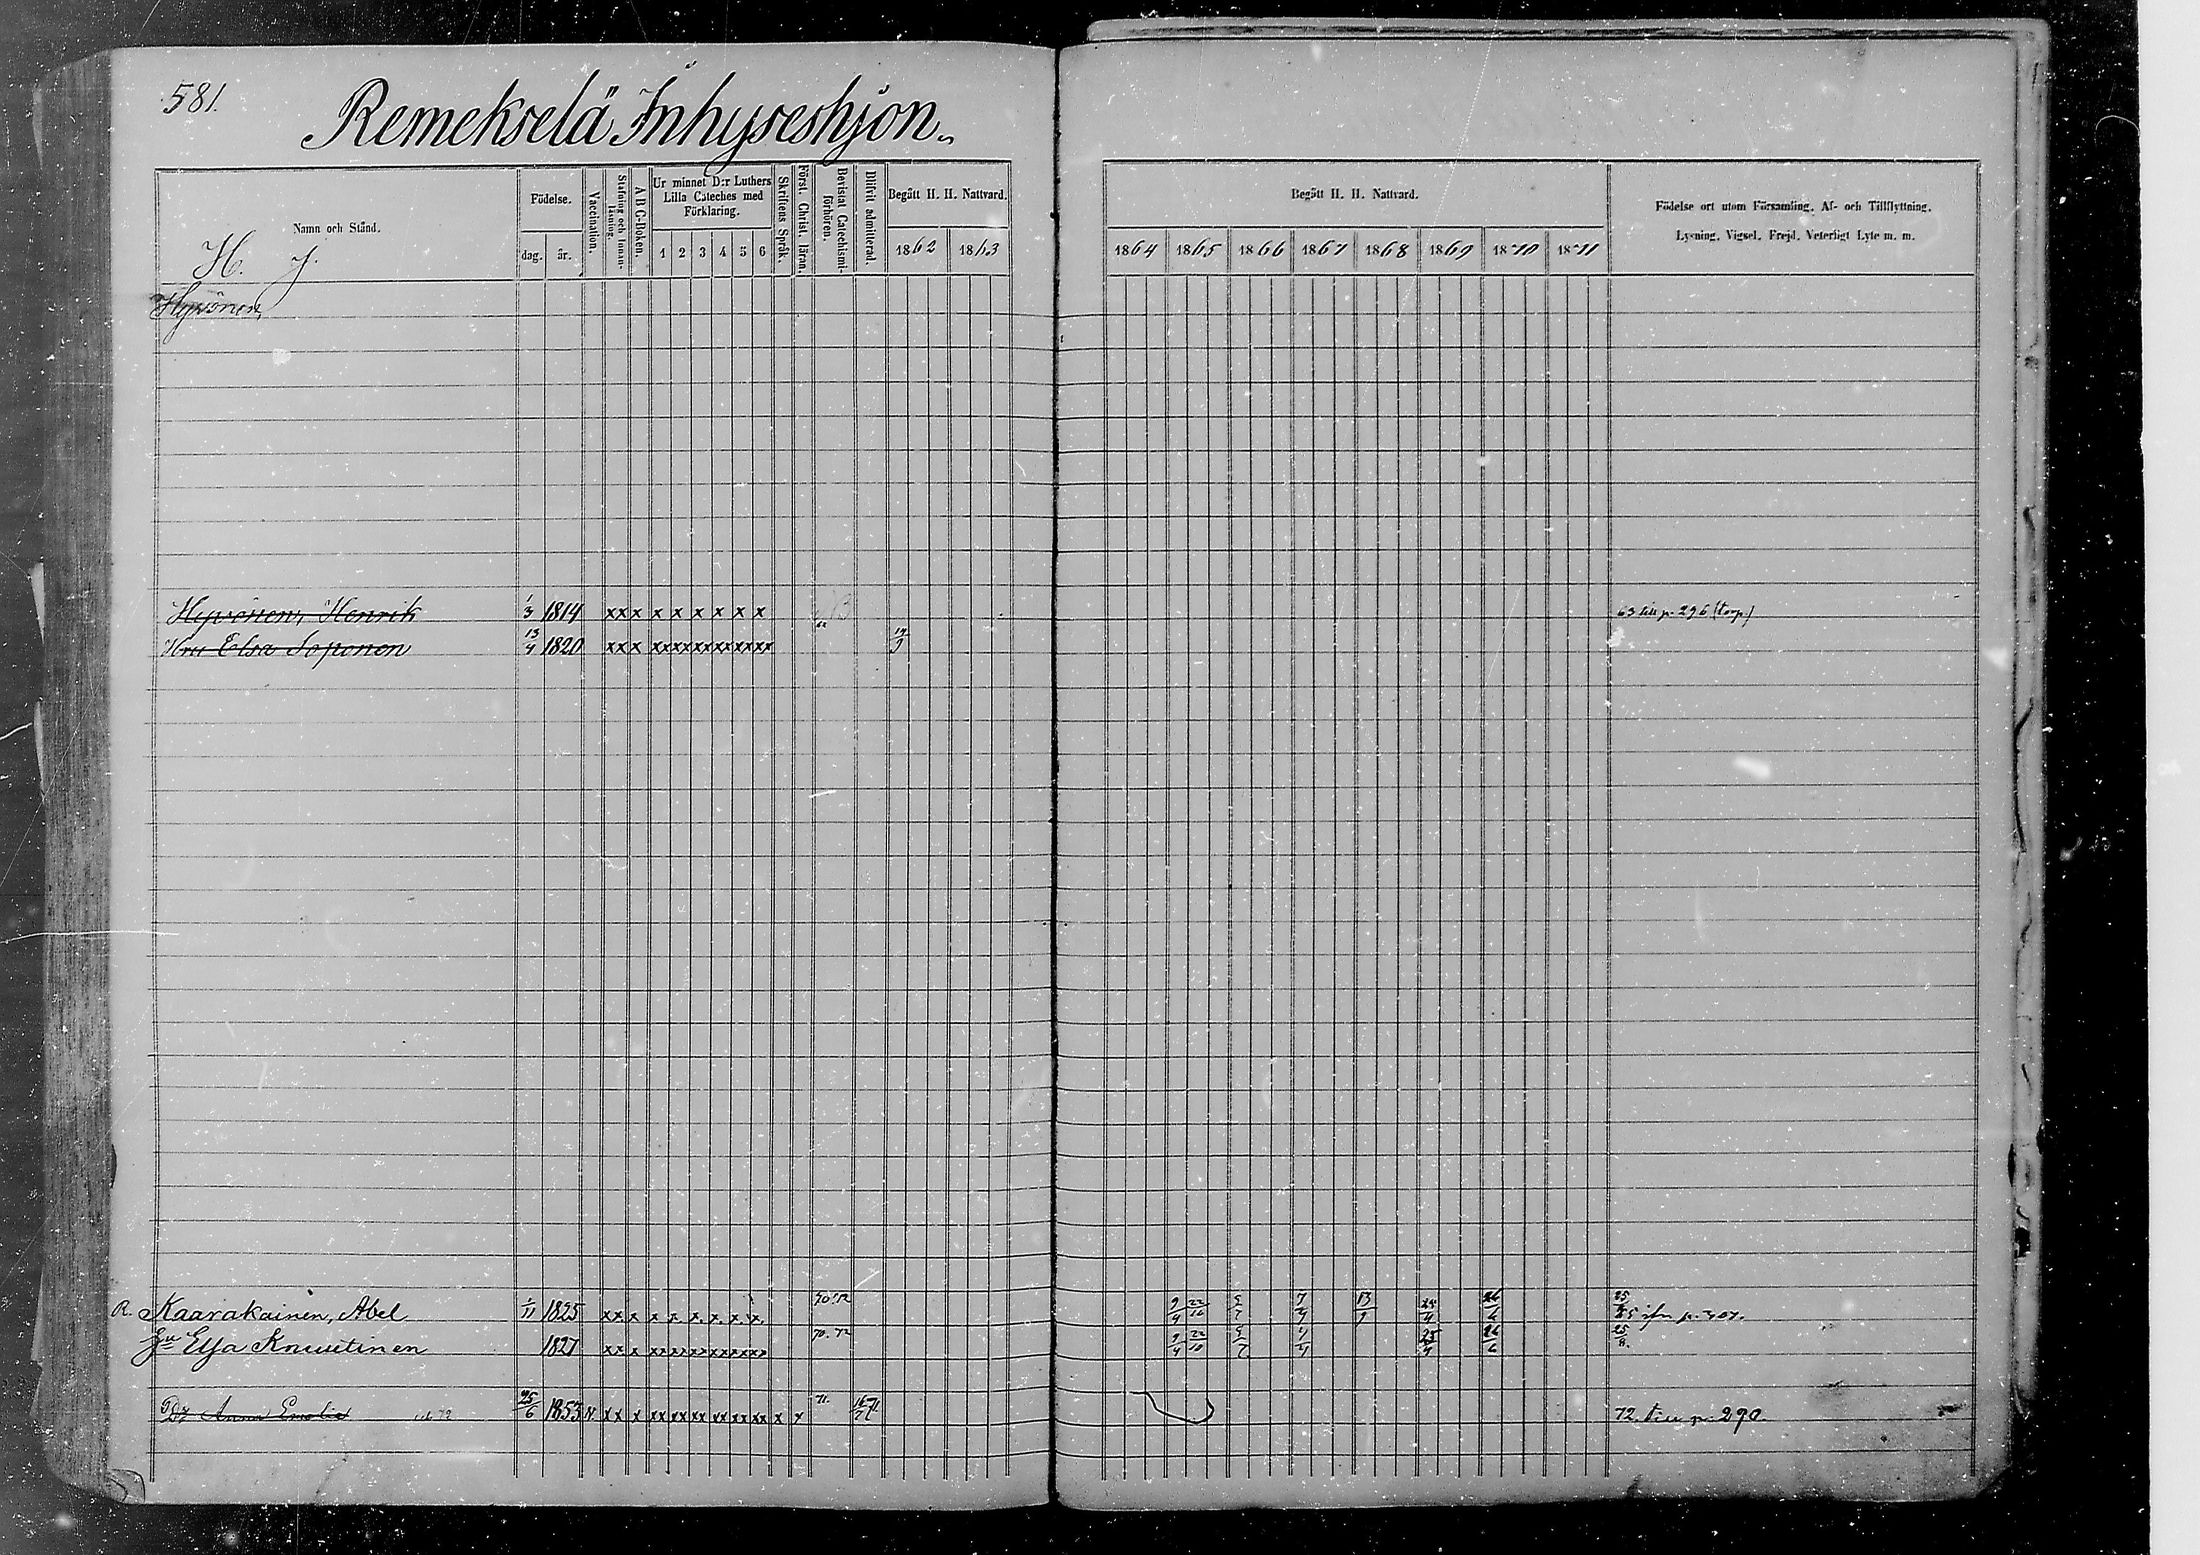 581.
Remekselä Inhyseshjon.
Namn och Stånd.
H. J.
Födelse.
dag. år.
Vaccination.
Stafning och Innanläsning.
A B C-Boken.
Ur minnet D:r Luthers Lilla Cateches med Förklaring.
1 2 3 4 5 6
Skriftens Språk.
Först. Christ. läran.
Bevistat Catechismiförhören.
Blifvit admitterad.
Begått H. H. Nattvard.
1862 1863
Begått H. H. Nattvard.
1864 1865 1866 1867 1868 1869 1870 1871
Födelse ort utom Församling. Af- och Tillflyttning.
Lysning. Vigsel. Frejd. Veterligt Lyte m. m.
Hyvönen,
Hyvönen, Henrik 1/3 1814 x x x x x x x x x 62 63 till p. 296 (torp.)
Hru Elsa Toponen 13/4 1820 x x x xx xx xx xx xx xx 19/9
R. Kaarakainen, Abel 1/11 1825 xx x x x x x x x 70 72 9/4 22/10 7/4 13/9 25/4 26/6 p. 307.
Hu Elsa Knuutinen 1827 xx x xx xx xx xx xx xx 70. 72 9/4 22/10 25/4 26/6 25/8.
Dr Anna Emelie 72 25/6 1853 xx x xx xx xx xx xx xx x x 71. 16/7 71 72. till p. 290.